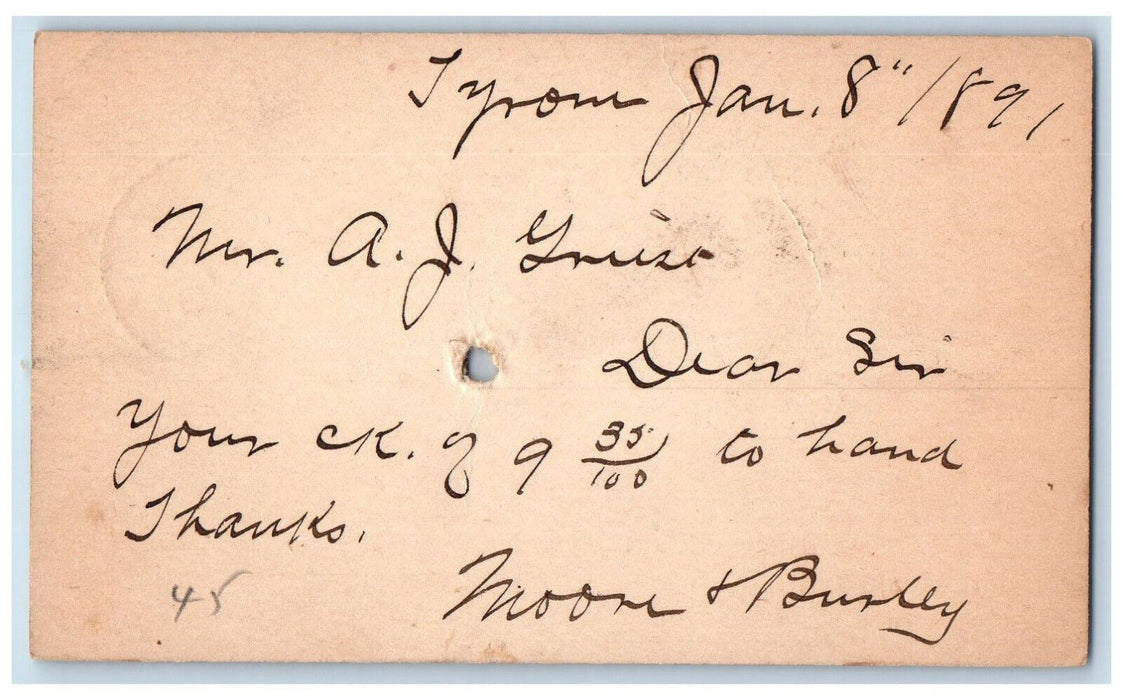 Tyrone Jan. 8" 1891
Mr. A. J. Griest
Dear Sir
Your ck. of 9 35/100 to hand
Thanks.
Moore & Burley
45